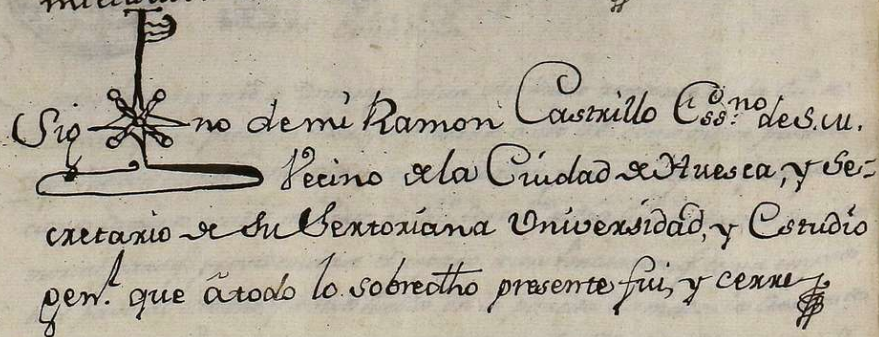 Sig no de mi Ramon Castrillo Essno de S. M.
Vecino de la Ciudad de Huesca, y Se-
cretario de su Sertoriana Universidad, y Estudio
genl. que à todo lo sobredho presente fui, y cerre